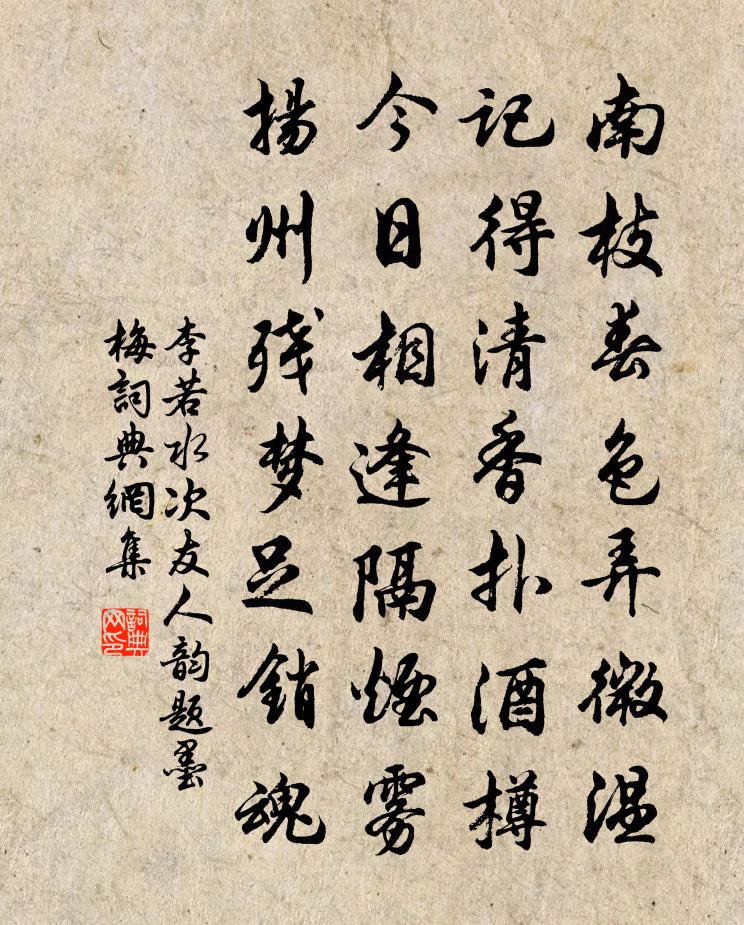 南枝春色弄微温
记得清香扑酒樽
今日相逢隔煙雾
揚州残梦足銷魂
李若水次友人韵题墨
梅詞典網集
詞典网印